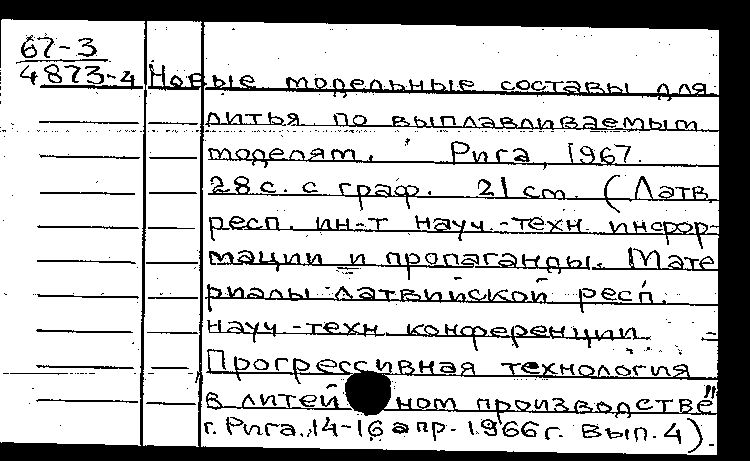 67-3
4873-4 Новые модельные составы для
литья по выплавливаемым
моделям. Рига, 1967.
28 с. с граф. 21 cm. (Латв.
респ. ин-т науч.-техн. инфор-
мации и пропаганды. Мате
риалы Латвийской респ.
науч.-техн. конференции -
Прогрессивная технология
в литейном производстве"
г. Рига, 14-16 апр. 1966 г. Вып. 4).